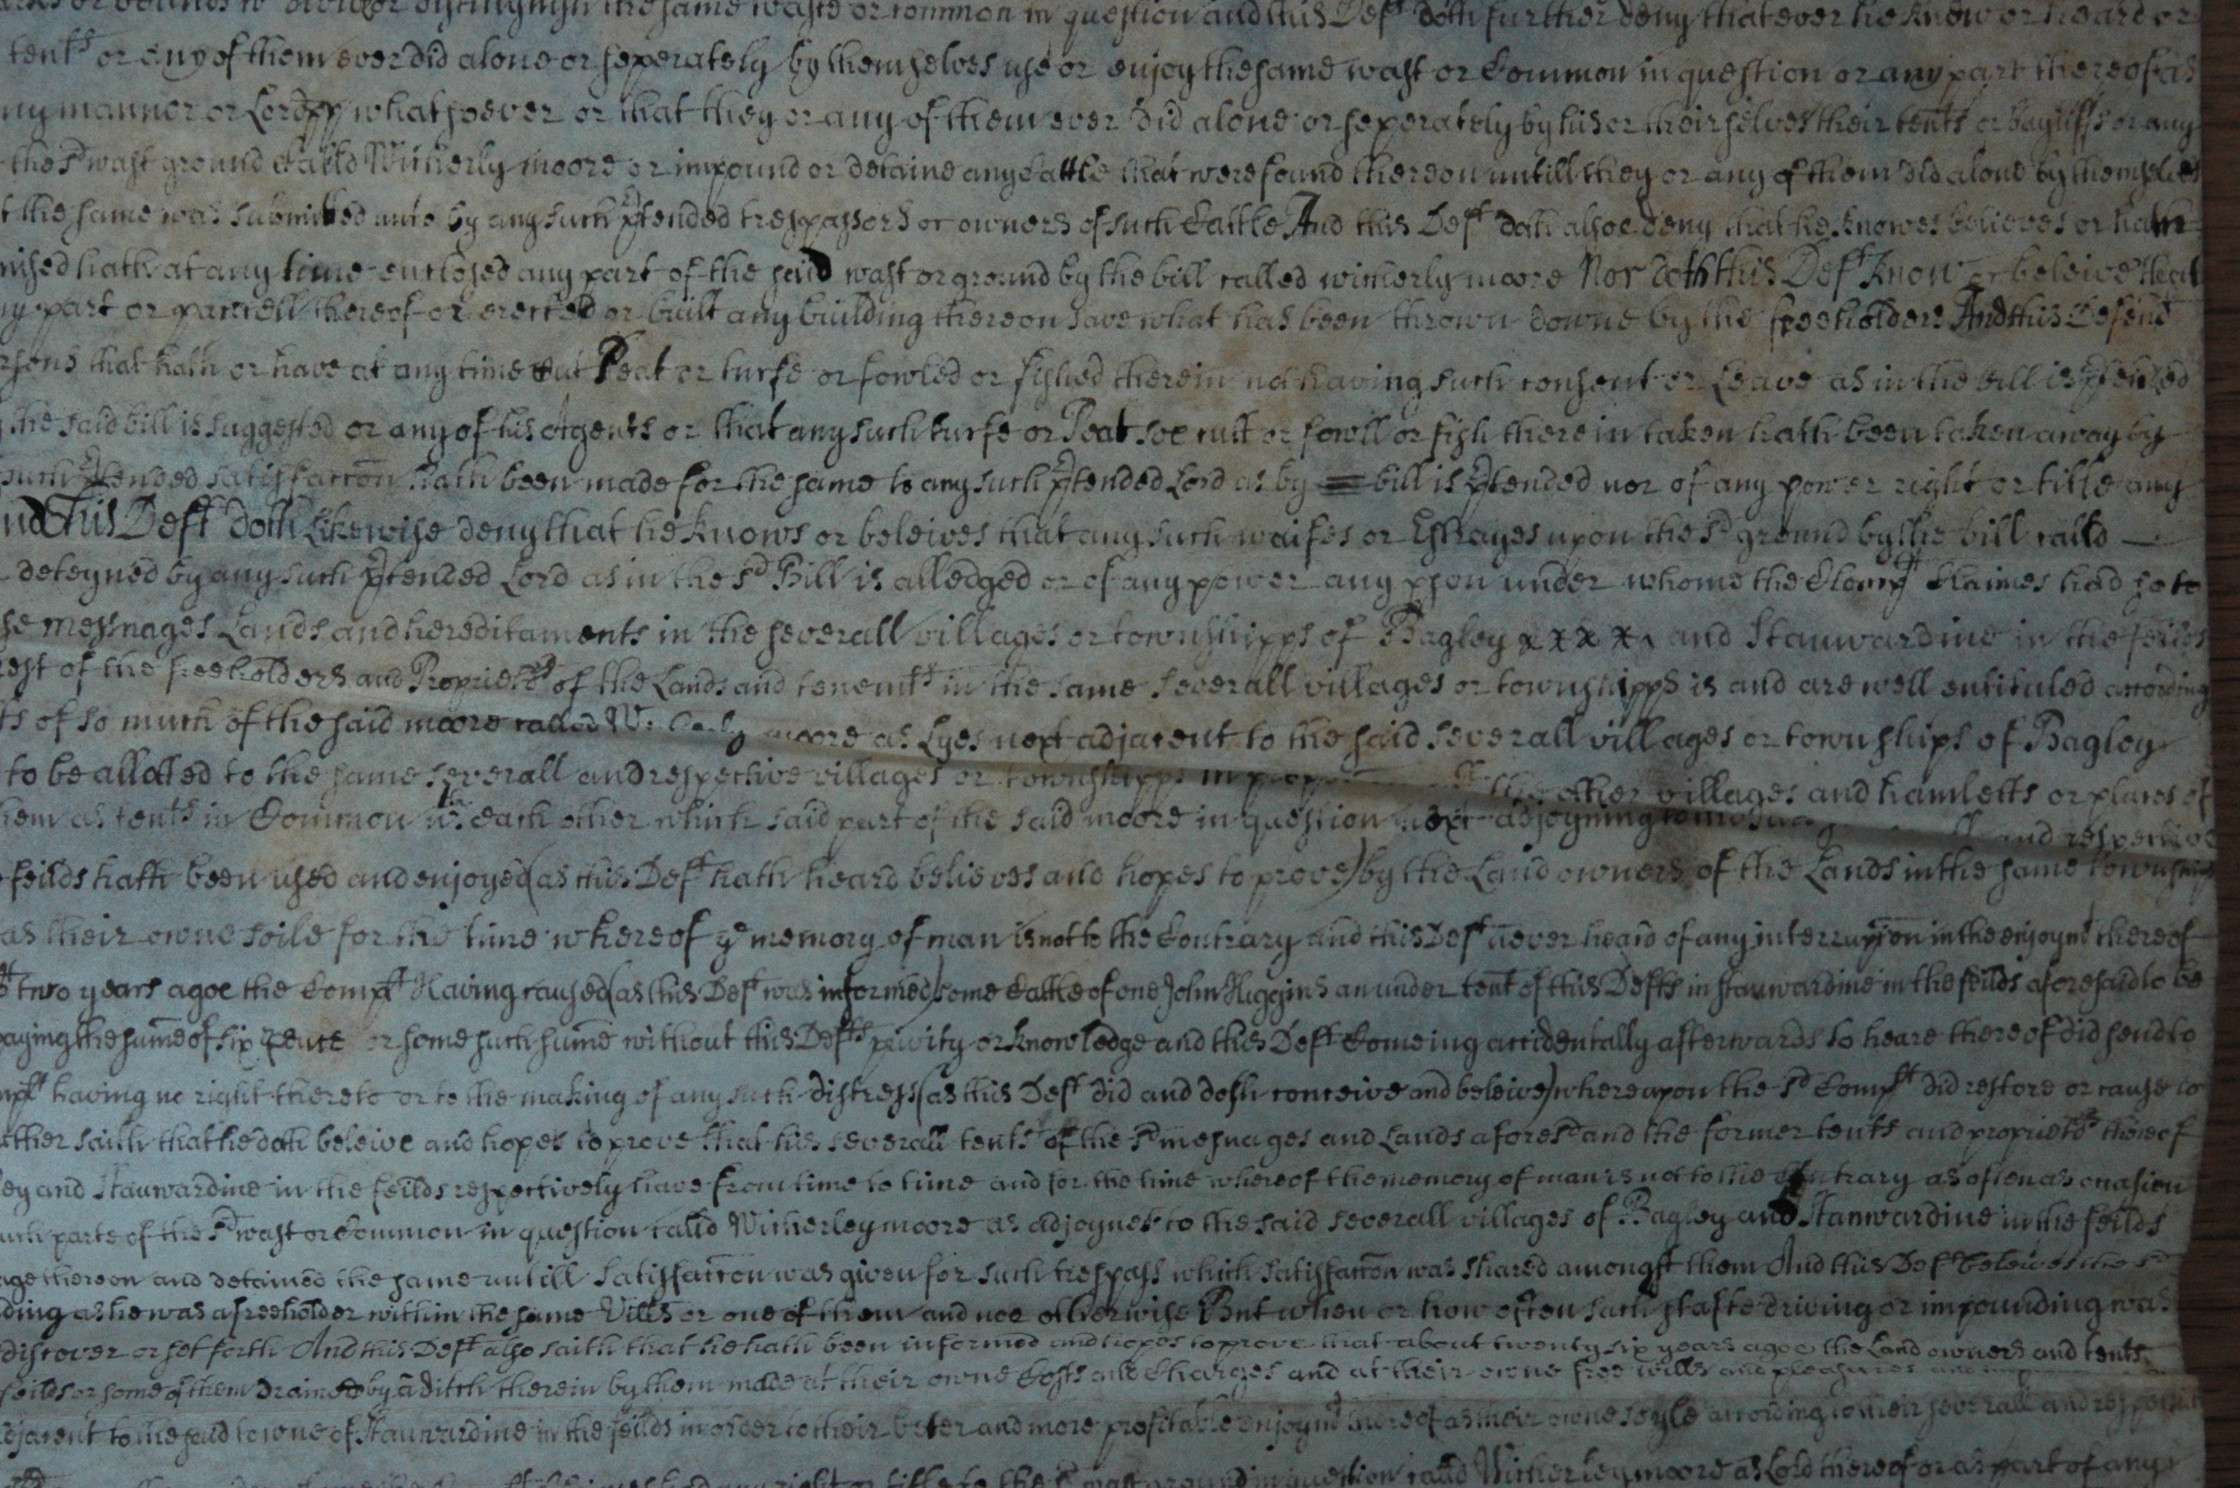 or bounds to or distinguish the same waste or common in question and this Deft doth further deny that ever he knew or heard or
tents or any of them ever did alone or seperately by themselves use or enjoy the same wast or Common in question or any part thereof as
ny mannor or Lordpp whatsoever or that they or any of them ever did alone or seperately by his or their selves their tents or bayliffs or any
the sd wast ground called Witherly moore or impound or detaine any cattle that were found thereon untill they or any of them did alone by themselves
t the same was submitted unto by any such ptended trespassors or owners of such Cattle And this Deft doth alsoe deny that he knowes believes or hath
nised hath at any time enclosed any part of the said wast or ground by the bill called witherly moore Nor doth this Deft know or beleive that
ny part or parcell thereof or erected or built any building thereon save what has been thrown downe by the freeholders And this Defend
rsons that hath or have at any time cut Peat or turfe or fowled or fished therein not having such consent or Leave as in the bill is ptended
the said bill is suggested or any of his Agents or that any such turfe or Peat soe cutt or fowll or fish therein taken hath been taken away by
such ptended satisfaccon hath been made for the same to any such ptended Lord as by bill is ptended nor of any power right or title any
nd This Deft doth Likewise deny that he knows or beleives that any such waifes or Estrayes upon the sd ground by the bill calld
deteyned by any such ptended Lord as in the sd Bill is alledged or of any power any pson under whome the Complt Claimes had so to
se messuages Lands and hereditaments in the severall villages or townshipps of Bagley x x x x and Stanwardine in the feilds
rest of the freeholders and Proprietrs of the Lands and tenemts in the same severall villages or townshipps is and are well entituled according
ts of so much of the said moore called moore as Lyes next adjacent to the said severall villages or townships of Bagley
to be allotted to the same severall and respective villages or townshipps in the other villages and hamletts or places of
hem as tents in Common wth each other which said part of the said moore in question next adjoyning to and respective
feilds hath been used and enjoyed (as this Deft hath heard believes and hopes to prove) by the Land owners of the Lands in the same townshipps
as their owne soile for the time whereof ye memory of man is not to the Contrary and this Deft never heard of any interrupion in the enjoymt thereof
two years agoe the Complt Having caused (as this Deft was informed) some Cattle of one John Higgins an under tent of this Defts in Stanwardine in the feilds aforesaid to be
paying the sume of six pence or some such sume without this Defts privity or knowledge and this Deft Comeing accidentally afterwards to heare thereof did send to
mplt having no right thereto or to the making of any such distress (as this Deft did and doth conceive and beleive) whereupon the sd Complt did restore or cause to
rther saith that he doth beleive and hopes to prove that his severall tents of the sd messuages and Lands aforesd and the former tents and proprietrs thereof
ey and Stanwardine in the feilds respectively have from time to time and for the time whereof the memory of man is not to the Contrary as often as occasion
such parte of the sd wast or Common in question calld Witherley moore as adjoynes to the said severall villages of Bagley and Stanwardine in the feilds
age thereon and detained the same untill satisfaccon was given for such trespass which satisfaccon was shared amongst them And this Deft beleives the sd
ding as he was a freeholder within the same Vills or one of them and noe otherwise But when or how often such driving or impounding was
discover or set forth And this Deft also saith that he hath been informed and hopes to prove that about twenty six years agoe the Land owners and tents
feilds or some of them Drained by a ditch therein by them made at their owne Costs and Charges and at their owne free wills and pleasures
djacent to the said towne of Stanwardine in the feilds in order to their better and more profitable enjoymt thereof as their owne soyle according to their severall and respective
any right or title to the sd wast ground in question calld Witherley moore as Lord thereof or as part of any